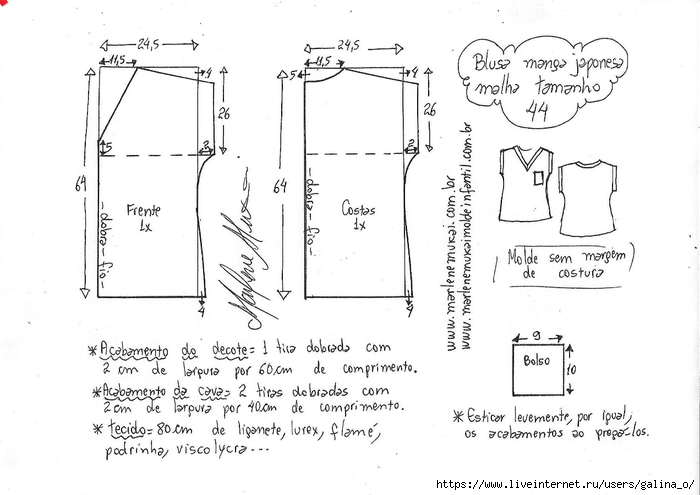 Blusa manga japonesa
malha tamanho
44
24,5
11,5
4
26
2
5
64
Frente
1x
dobra - fio
4
24,5
11,5
5
4
26
2
64
Costas
1x
dobra - fio
4
Marlene Mukai
www.marlenemukai.com.br
www.marlenemukaimoldeinfantil.com.br
Molde sem margem
de costura
9
Bolso
10
* Acabamento do decote = 1 tira dobrada com
2 cm de largura por 60.cm de comprimento.
* Acabamento da cava = 2 tiras dobradas com
2 cm de largura por 40.cm de comprimento.
* tecido = 80.cm de liganete, lurex, flamé,
podrinha, viscolycra...
* Esticar levemente, por igual,
os acabamentos ao pregá-los.
https://www.liveinternet.ru/users/galina_o/